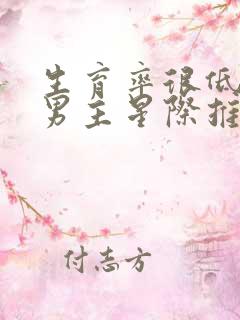 生育率很低
男主星际推
付志方